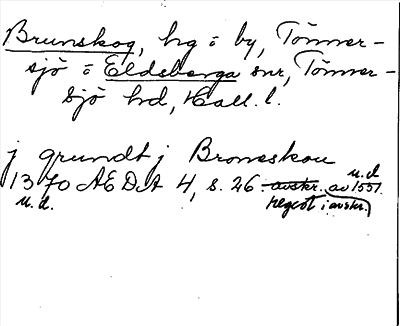 Brunskog, hg i by, Tönner-
sjö i Eldsberga snr, Tönner-
sjö hd, Hall. l.
j grundt j Broneskou
u.d
1370 AEDA 4, s. 26 avskr. av 1551.
u.d. regest i avskr.